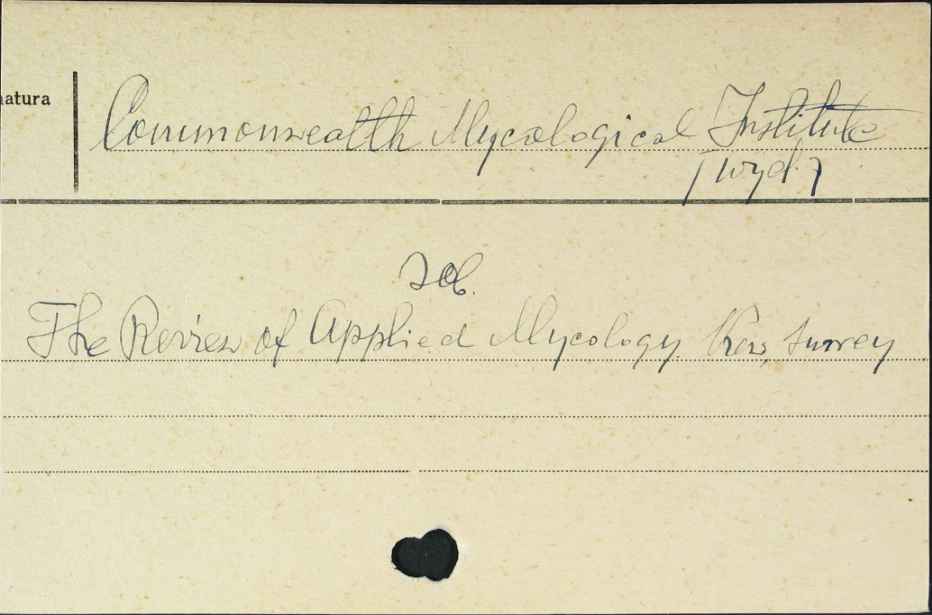 natura
Commonwealth Mycological Institute
/wyd./
zob.
The Review of Applied Mycology. Kew, Surrey